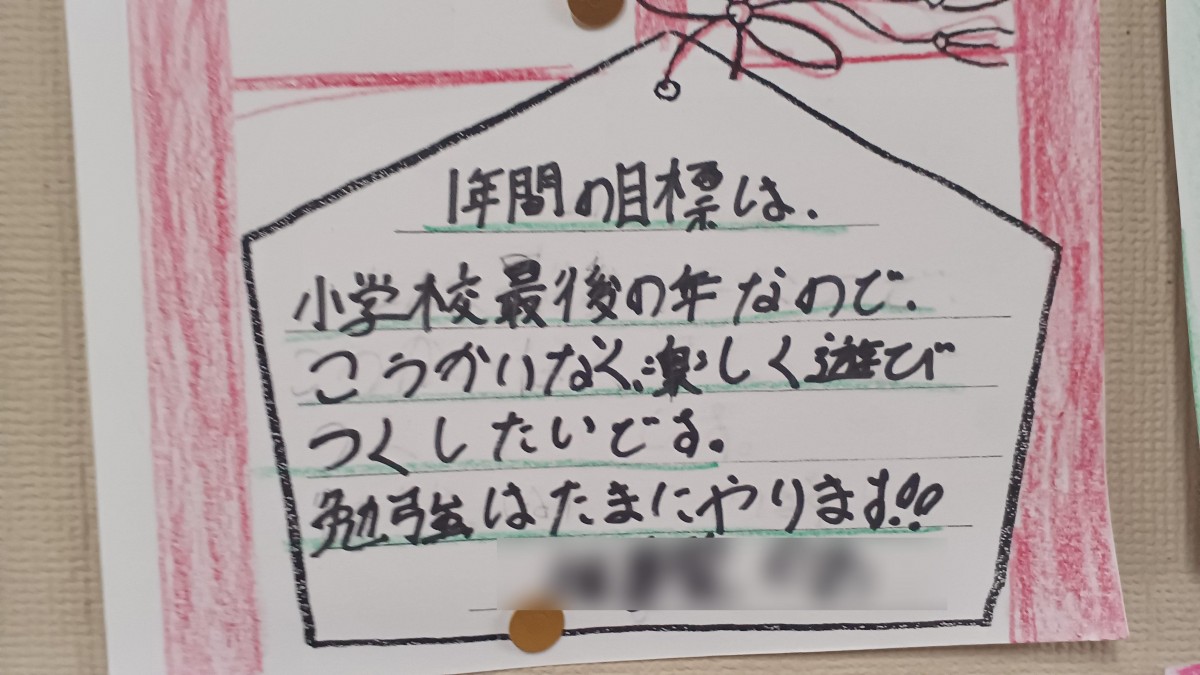 1年間の目標は、
小学校最後の年なので、
こうかいなく、楽しく遊び
つくしたいです。
勉強はたまにやります!!